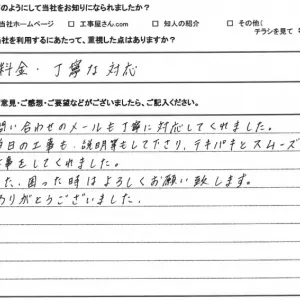 のようにして当社をお知りになられましたか？
当社ホームページ □ 工事屋さん.com □ 知人の紹介 □ その他（
チラシを見て
当社を利用するにあたって、重視した点はありますか？
料金・丁寧な対応
意見・ご感想・ご要望などがございましたら、ご記入ください。
問い合わせのメールも丁寧に対応してくれました。
当日の工事も、説明等もして下さり、テキパキとスムーズ
工事をしてくれました。
た、困った時はよろしくお願い致します。
ありがとうございました。